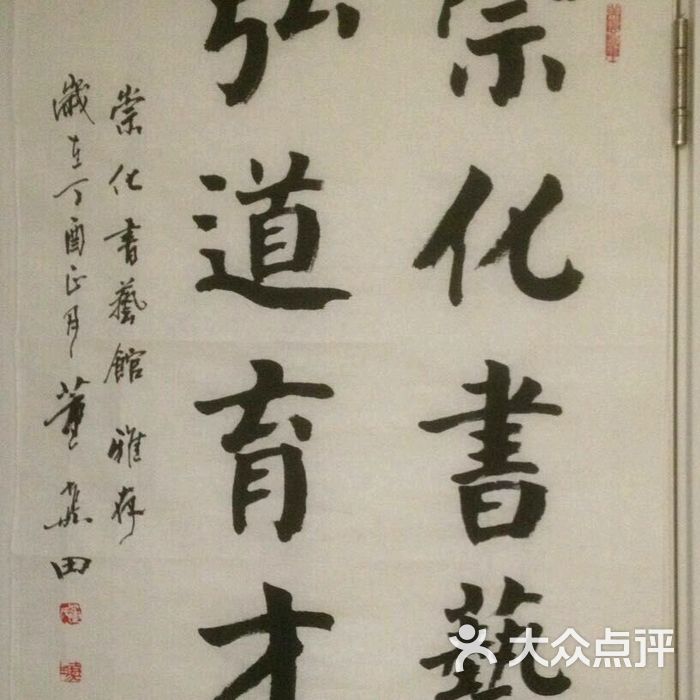 崇化書藝
弘道育才
崇化書藝館雅存
歲在丁酉正月董燕田
大众点评